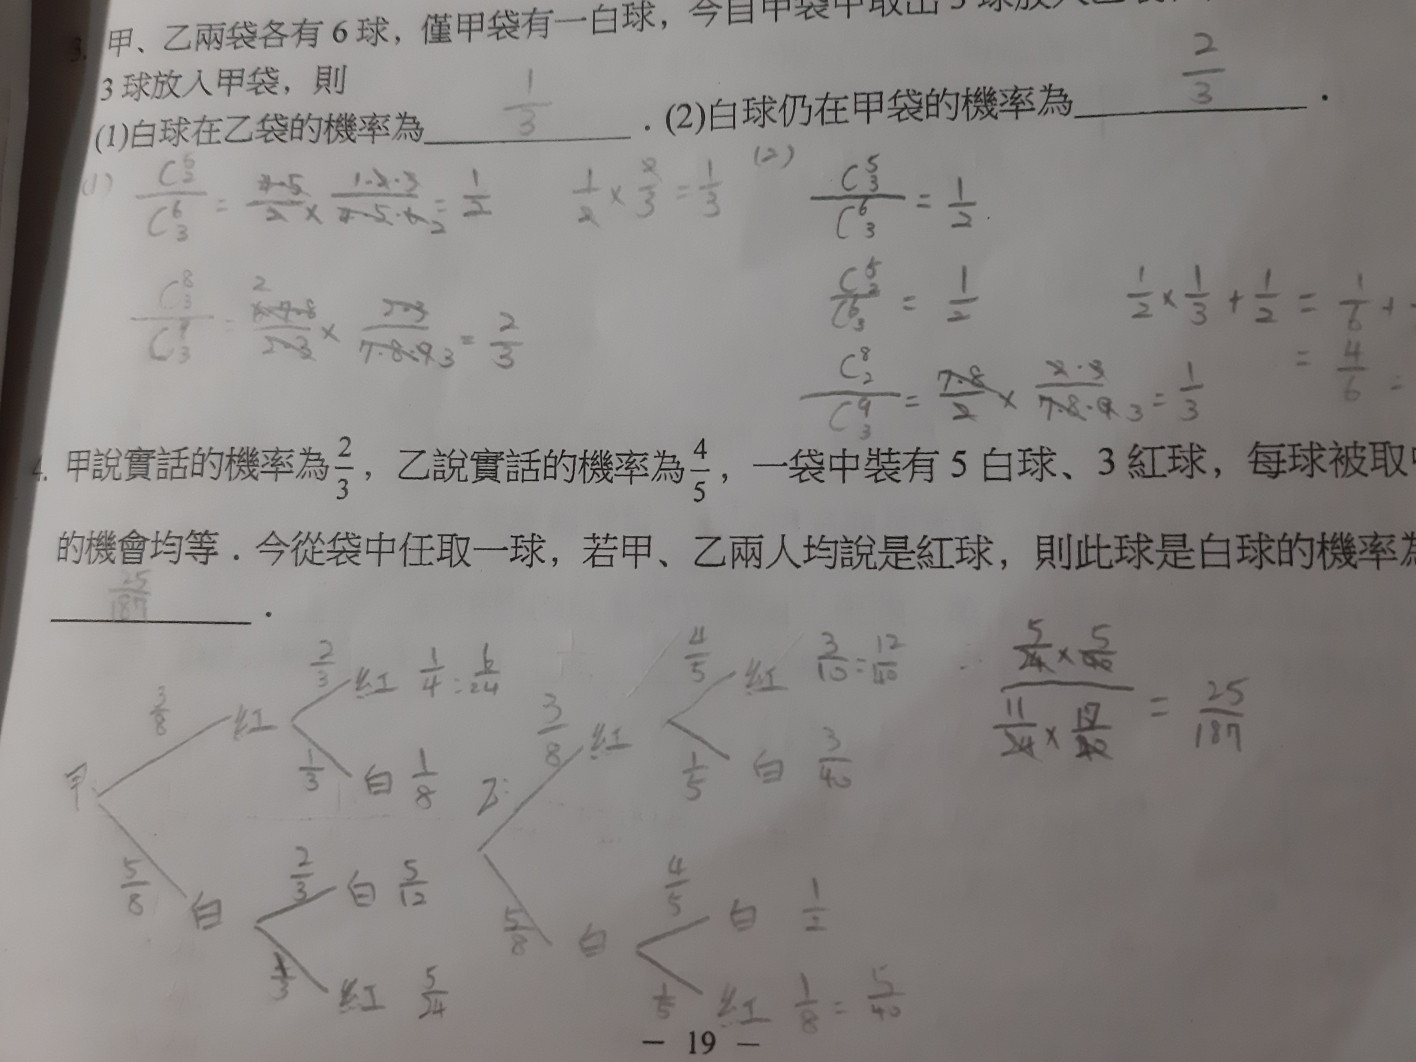 3. 甲、乙兩袋各有 6 球，僅甲袋有一白球，今自甲袋中取出 3 球放入乙袋
3 球放入甲袋，則
(1)白球在乙袋的機率為 1/3 . (2)白球仍在甲袋的機率為 2/3 .
(1) C^5_2 / C^6_3 = 4·5/2 × 1·2·3/4·5·6 = 1/2 1/2 × 2/3 = 1/3
C^8_3 / C^9_3 = 6·7·8/2·3 × 2·3/7·8·9 = 2/3
(2) C^5_3 / C^6_3 = 1/2
C^5_2 / C^6_3 = 1/2 1/2 × 1/3 + 1/2 = 1/6 +
C^8_2 / C^9_3 = 7·8/2 × 2·3/7·8·9 = 1/3 = 4/6 =
4. 甲說實話的機率為 2/3，乙說實話的機率為 4/5，一袋中裝有 5 白球、3 紅球，每球被取中
的機會均等．今從袋中任取一球，若甲、乙兩人均說是紅球，則此球是白球的機率為
25/187 .
甲 3/8 紅 2/3 紅 1/4 = 6/24
1/3 白 1/8
5/8 白 2/3 白 5/12
1/3 紅 5/24
乙: 3/8 紅 4/5 紅 3/10 = 12/40
1/5 白 3/40
5/8 白 4/5 白 1/2
1/5 紅 1/8 = 5/40
5/24 × 5/40 / 11/24 × 17/40 = 25/187
– 19 –